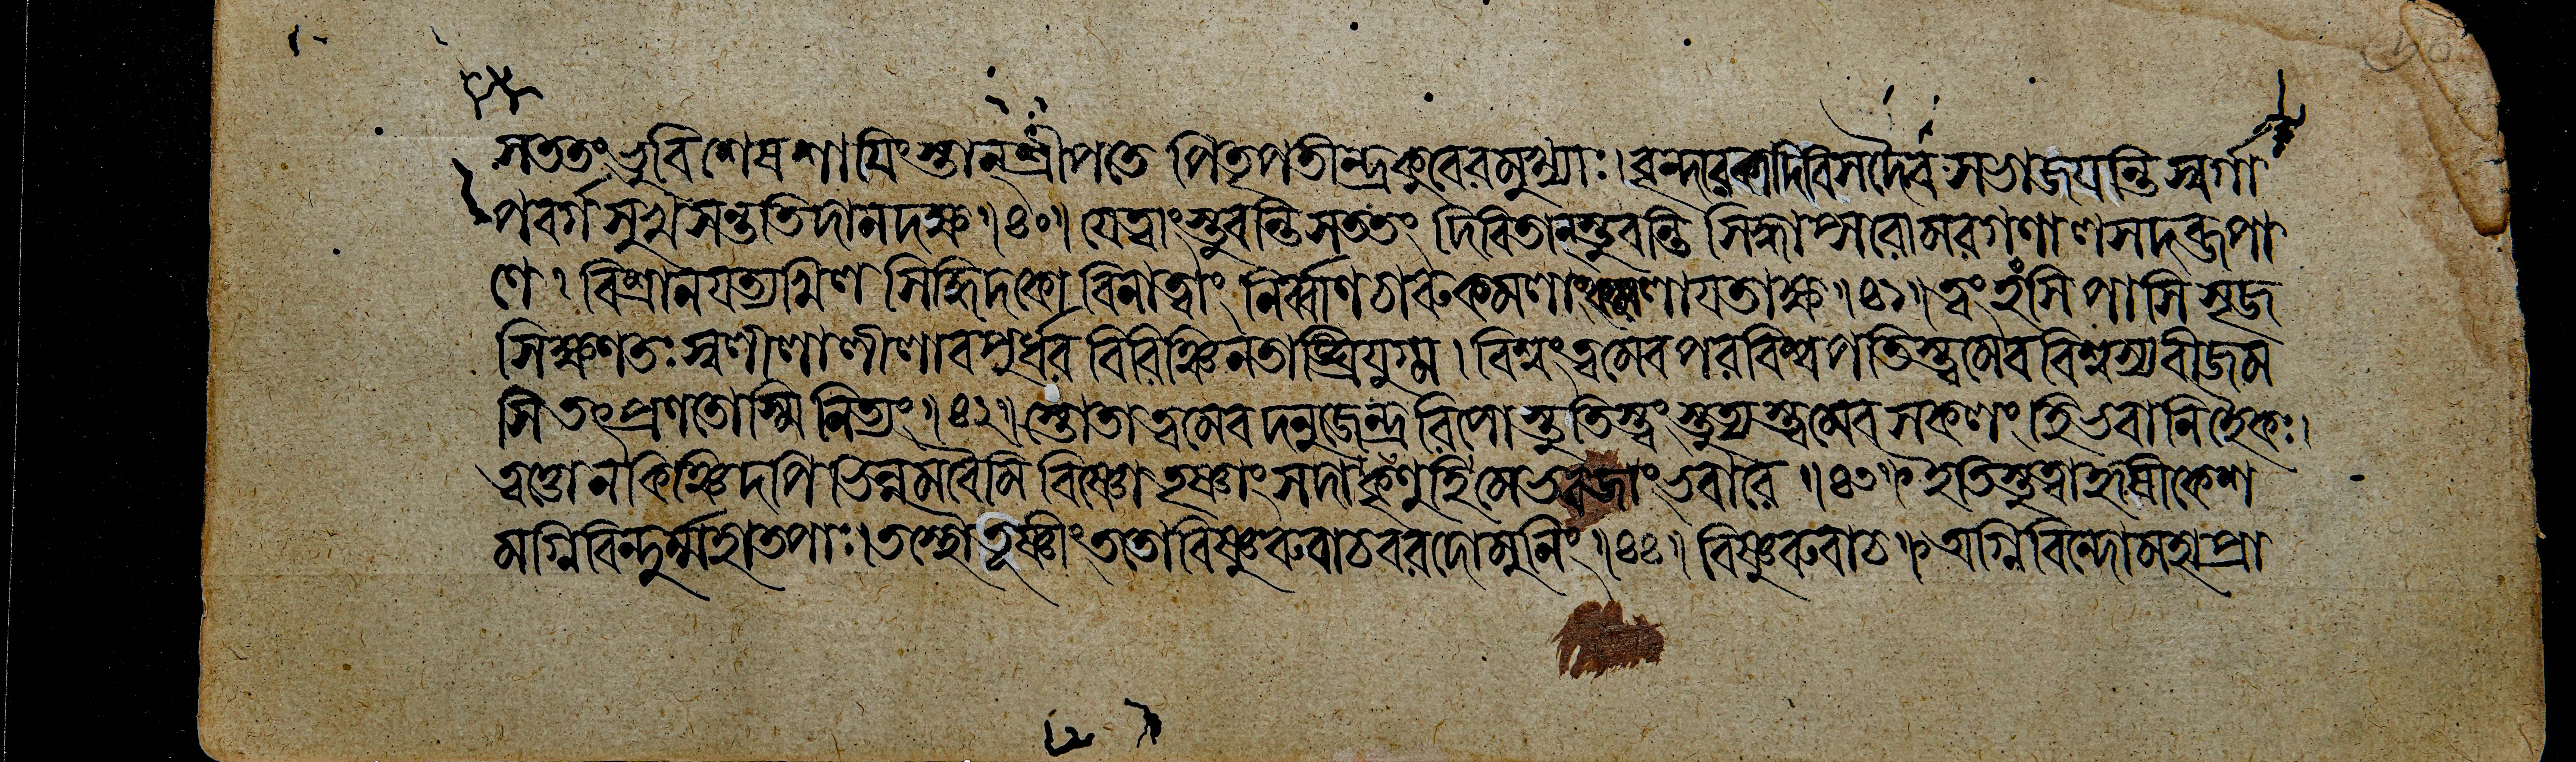 সততং ভুবি শেষশায়িংস্তান্ শ্রীপতে পিতৃপতীন্দ্রকুবেরমুখ্যাঃ। বৃন্দারকা দিবি সদৈব সভাজয়ন্তি স্বর্গা
পবর্গসুখসন্ততিদানদক্ষ॥৪০॥ যে ত্বাং স্তুবন্তি সততং দিবি তান্ স্তুবন্তি সিদ্ধাপ্সরোমরগণা লসদব্জপা
ণে। বিশ্রানয়ত্যখিলসিদ্ধিদ কো বিনা ত্বাং নির্ব্বাণচারুকমলাং কমলায়তাক্ষ॥৪১॥ ত্বং হংসি পাসি সৃজ
সি ক্ষণতঃ স্বলীলালীলাবপুর্ধর বিরিঞ্চিনতাঙ্ঘ্রিযুগ্ম। বিশ্বং ত্বমেব পরবিশ্বপতিস্ত্বমেব বিশ্বস্য বীজম
সি তৎ প্রণতোস্মি নিত্যং॥৪২॥ স্তোতা ত্বমেব দনুজেন্দ্ররিপো স্তুতিস্ত্বং স্তুত্যস্ত্বমেব সকলং হি ভবানিহৈকঃ।
ত্বত্তো ন কিঞ্চিদপি ভিন্নমবৈমি বিষ্ণো তৃষ্ণাং সদা কৃণুহি মে ভবজাং ভবারে॥৪৩॥ ইতি স্তুত্বা হৃষীকেশ
মগ্নিবিন্দুর্ম্মহাতপাঃ। তস্থৌ তূষ্ণীং ততো বিষ্ণুরুবাচ বরদো মুনিং॥৪৪॥ বিষ্ণুরুবাচ॥ অগ্নিবিন্দো মহাপ্রা